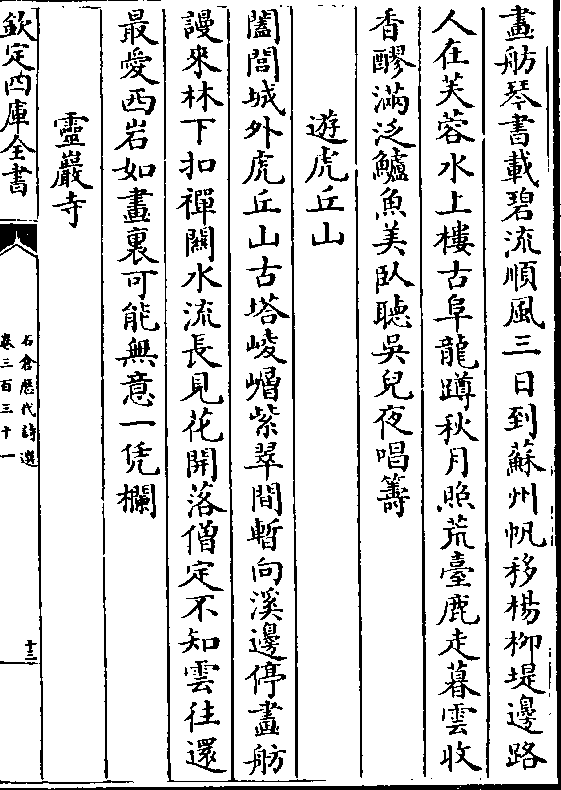 畫舫琴書載碧流順風三日到蘇州帆移楊柳堤邊路
人在芙蓉水上樓古阜龍蹲秋月照荒臺鹿走暮雲收
香醪滿泛鱸魚美臥聽吳兒夜唱籌
遊虎丘山
闔閭城外虎丘山古塔崚嶒紫翠間暫向溪邊停畫舫
謾來林下扣禪關水流長見花開落僧定不知雲往還
最愛西岩如畫裏可能無意一凭欄
靈巖寺
欽定四庫全書
石倉歴代詩選
卷三百三十一
十三